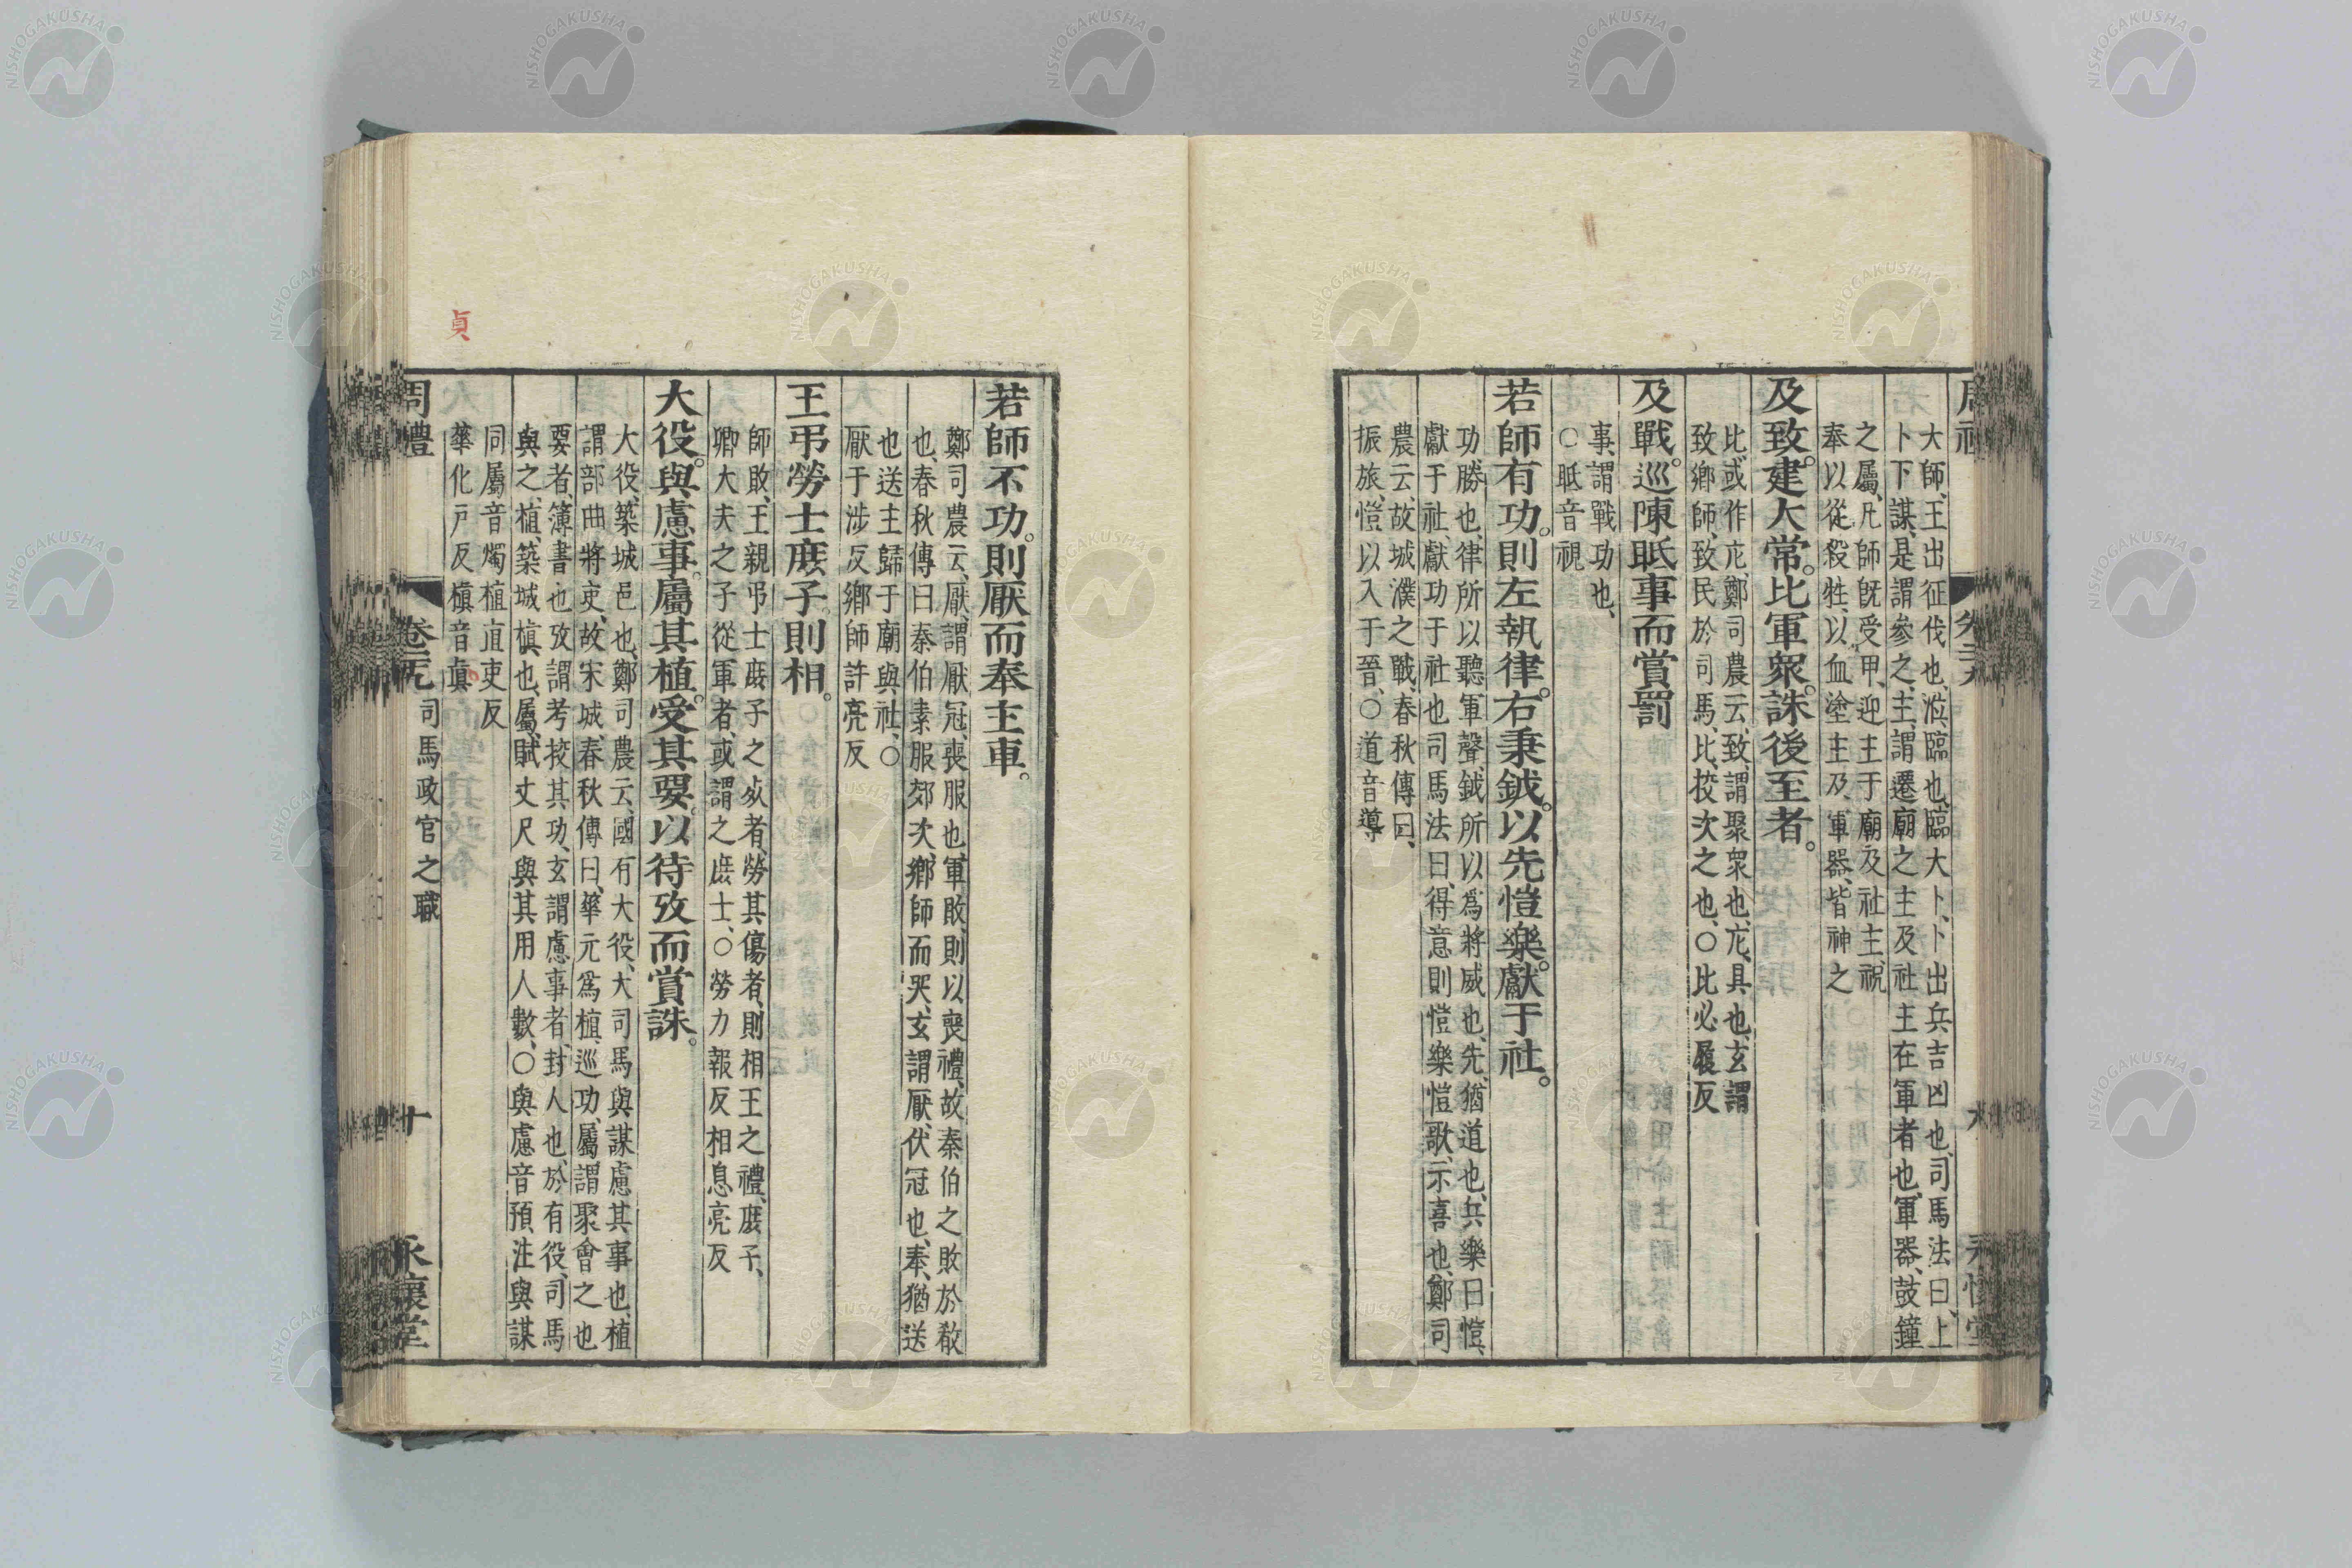 大師、王出征伐也、涖、臨也、臨大卜、卜出兵吉凶也、司馬法曰、上
卜下謀、是謂參之、主、謂遷廟之主及社主在軍者也、軍器、鼓鐘
之屬、凡師旣受甲、迎主于廟及社主、祝
奉以從、殺牲、以血塗主及軍器、皆神之
及致。建大常。比軍衆。誅後至者。
比或作庀、鄭司農云、致、謂聚衆也、庀、具也、玄謂
致鄉師、致民於司馬、比、挍次之也、〇比必履反
及戰。巡陳眡事而賞罰
事、謂戰功也、
〇眡音視
若師有功。則左執律。右秉鉞。以先愷樂。獻于社。
功勝也、律所以聽軍聲、鉞所以爲將威也、先、猶道也、兵樂曰愷、
獻于社、獻功于社也、司馬法曰、得意則愷樂愷歌、示喜也、鄭司
農云、故城濮之戰、春秋傳曰、
振旅、愷以入于晉、〇道音導
若師不功。則厭而奉主車。
鄭司農云、厭、謂厭冠、喪服也、軍敗、則以喪禮、故秦伯之敗於殽
也、春秋傳曰、秦伯素服郊次、鄉師而哭、玄謂厭、伏冠也、奉、猶送
也、送主歸于廟與社、〇
厭于涉反鄉師許亮反
王弔勞士庶子。則相。
師敗、王親弔士庶子之死者、勞其傷者、則相王之禮、庶子、
卿大夫之子從軍者、或謂之庶士、〇勞力報反相息亮反
大役。與慮事。屬其植。受其要。以待攷而賞誅。
大役、築城邑也、鄭司農云、國有大役、大司馬與謀慮其事也、植、
謂部曲將吏、故宋城、春秋傳曰、華元爲植、巡功、屬謂聚會之也
要者、簿書也、攷謂考挍其功、玄謂慮事者、封人也、於有役、司馬
與之、植、築城楨也、屬、賦丈尺與其用人數、〇與慮音預注與謀
同屬音燭植直吏反
華化戸反楨音眞
貞
周禮
卷二十九
司馬政官之職
十
永懷堂
NISHOGAKUSHA